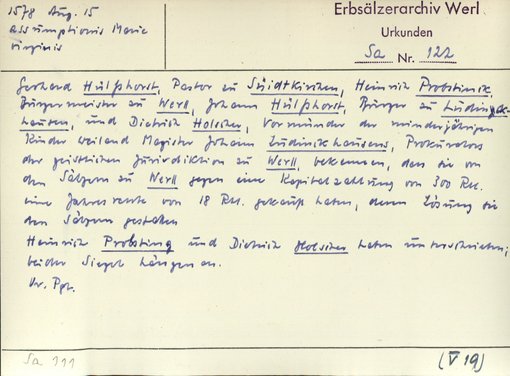 1578 Aug. 15
assumptionis Marie
virginis
Erbsälzerarchiv Werl
Urkunden
Sa Nr. 122
Gerhard Hülshorst, Pastor zu Südtkirchen, Heinrich Probstinck,
Bürgermeister zu Werll, Johann Hülshorst, Bürger zu Lüdingk-
hausen, und Dietrich Holscher, Vormünder der minderjährigen
Kinder weiland Magister Johann Lüdinckhausens, Prokurators
der geistlichen Jurisdiktion zu Werll, bekennen, dass sie von
den Sälzern zu Werll gegen eine Kapitalzahlung von 300 Rtl.
eine Jahresrente von 18 Rtl. gekauft haben, deren Lösung sie
den Sälzern gestatten
Heinrich Probsting und Dietrich Holscher haben unterschrieben;
beider Siegel hängen an.
Or. Pgt.
Sa 111
(V 19)